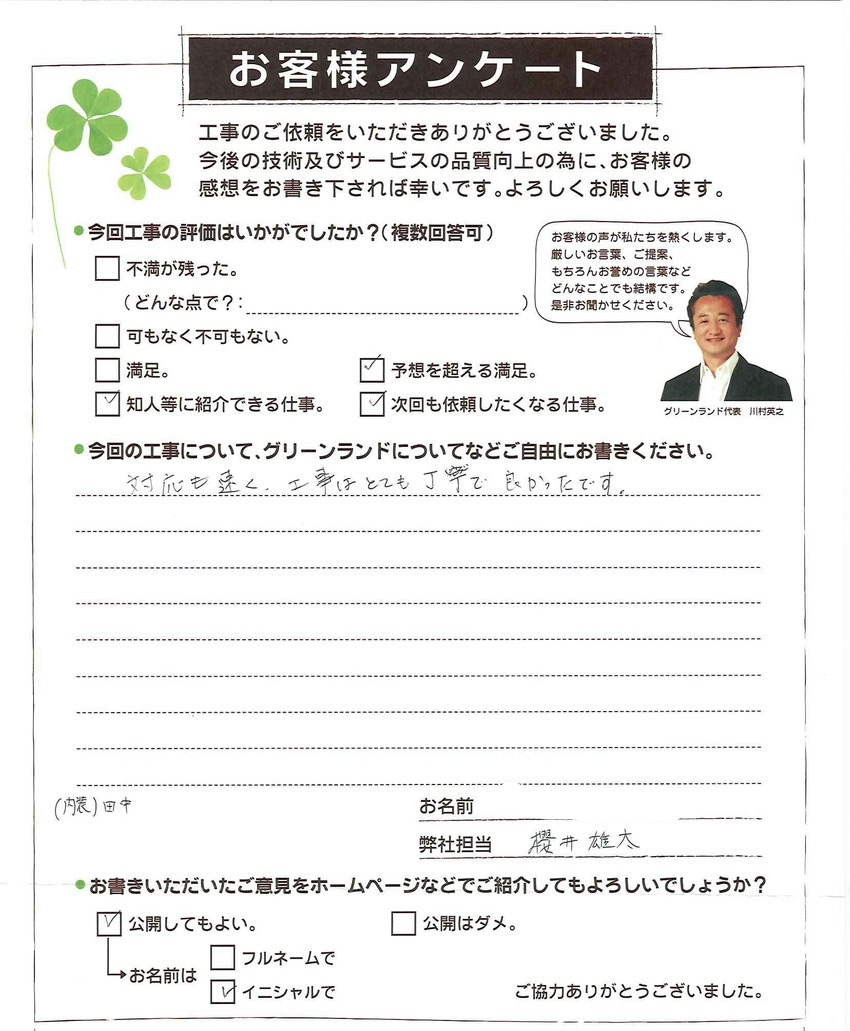 お客様アンケート
工事のご依頼をいただきありがとうございました。
今後の技術及びサービスの品質向上の為に、お客様の
感想をお書き下されば幸いです。よろしくお願いします。
●今回工事の評価はいかがでしたか?(複数回答可)
お客様の声が私たちを熱くします。
厳しいお言葉、ご提案、
もちろんお誉めの言葉など
どんなことでも結構です。
是非お聞かせください。
不満が残った。
(どんな点で?: )
可もなく不可もない。
満足。
✓ 予想を超える満足。
✓ 知人等に紹介できる仕事。
✓ 次回も依頼したくなる仕事。
グリーンランド代表 川村英之
●今回の工事について、グリーンランドについてなどご自由にお書きください。
対応も速く、工事はとても丁寧で良かったです。
(内装)田中
お名前
弊社担当 櫻井雄太
●お書きいただいたご意見をホームページなどでご紹介してもよろしいでしょうか?
✓ 公開してもよい。
公開はダメ。
お名前は
フルネームで
✓ イニシャルで
ご協力ありがとうございました。